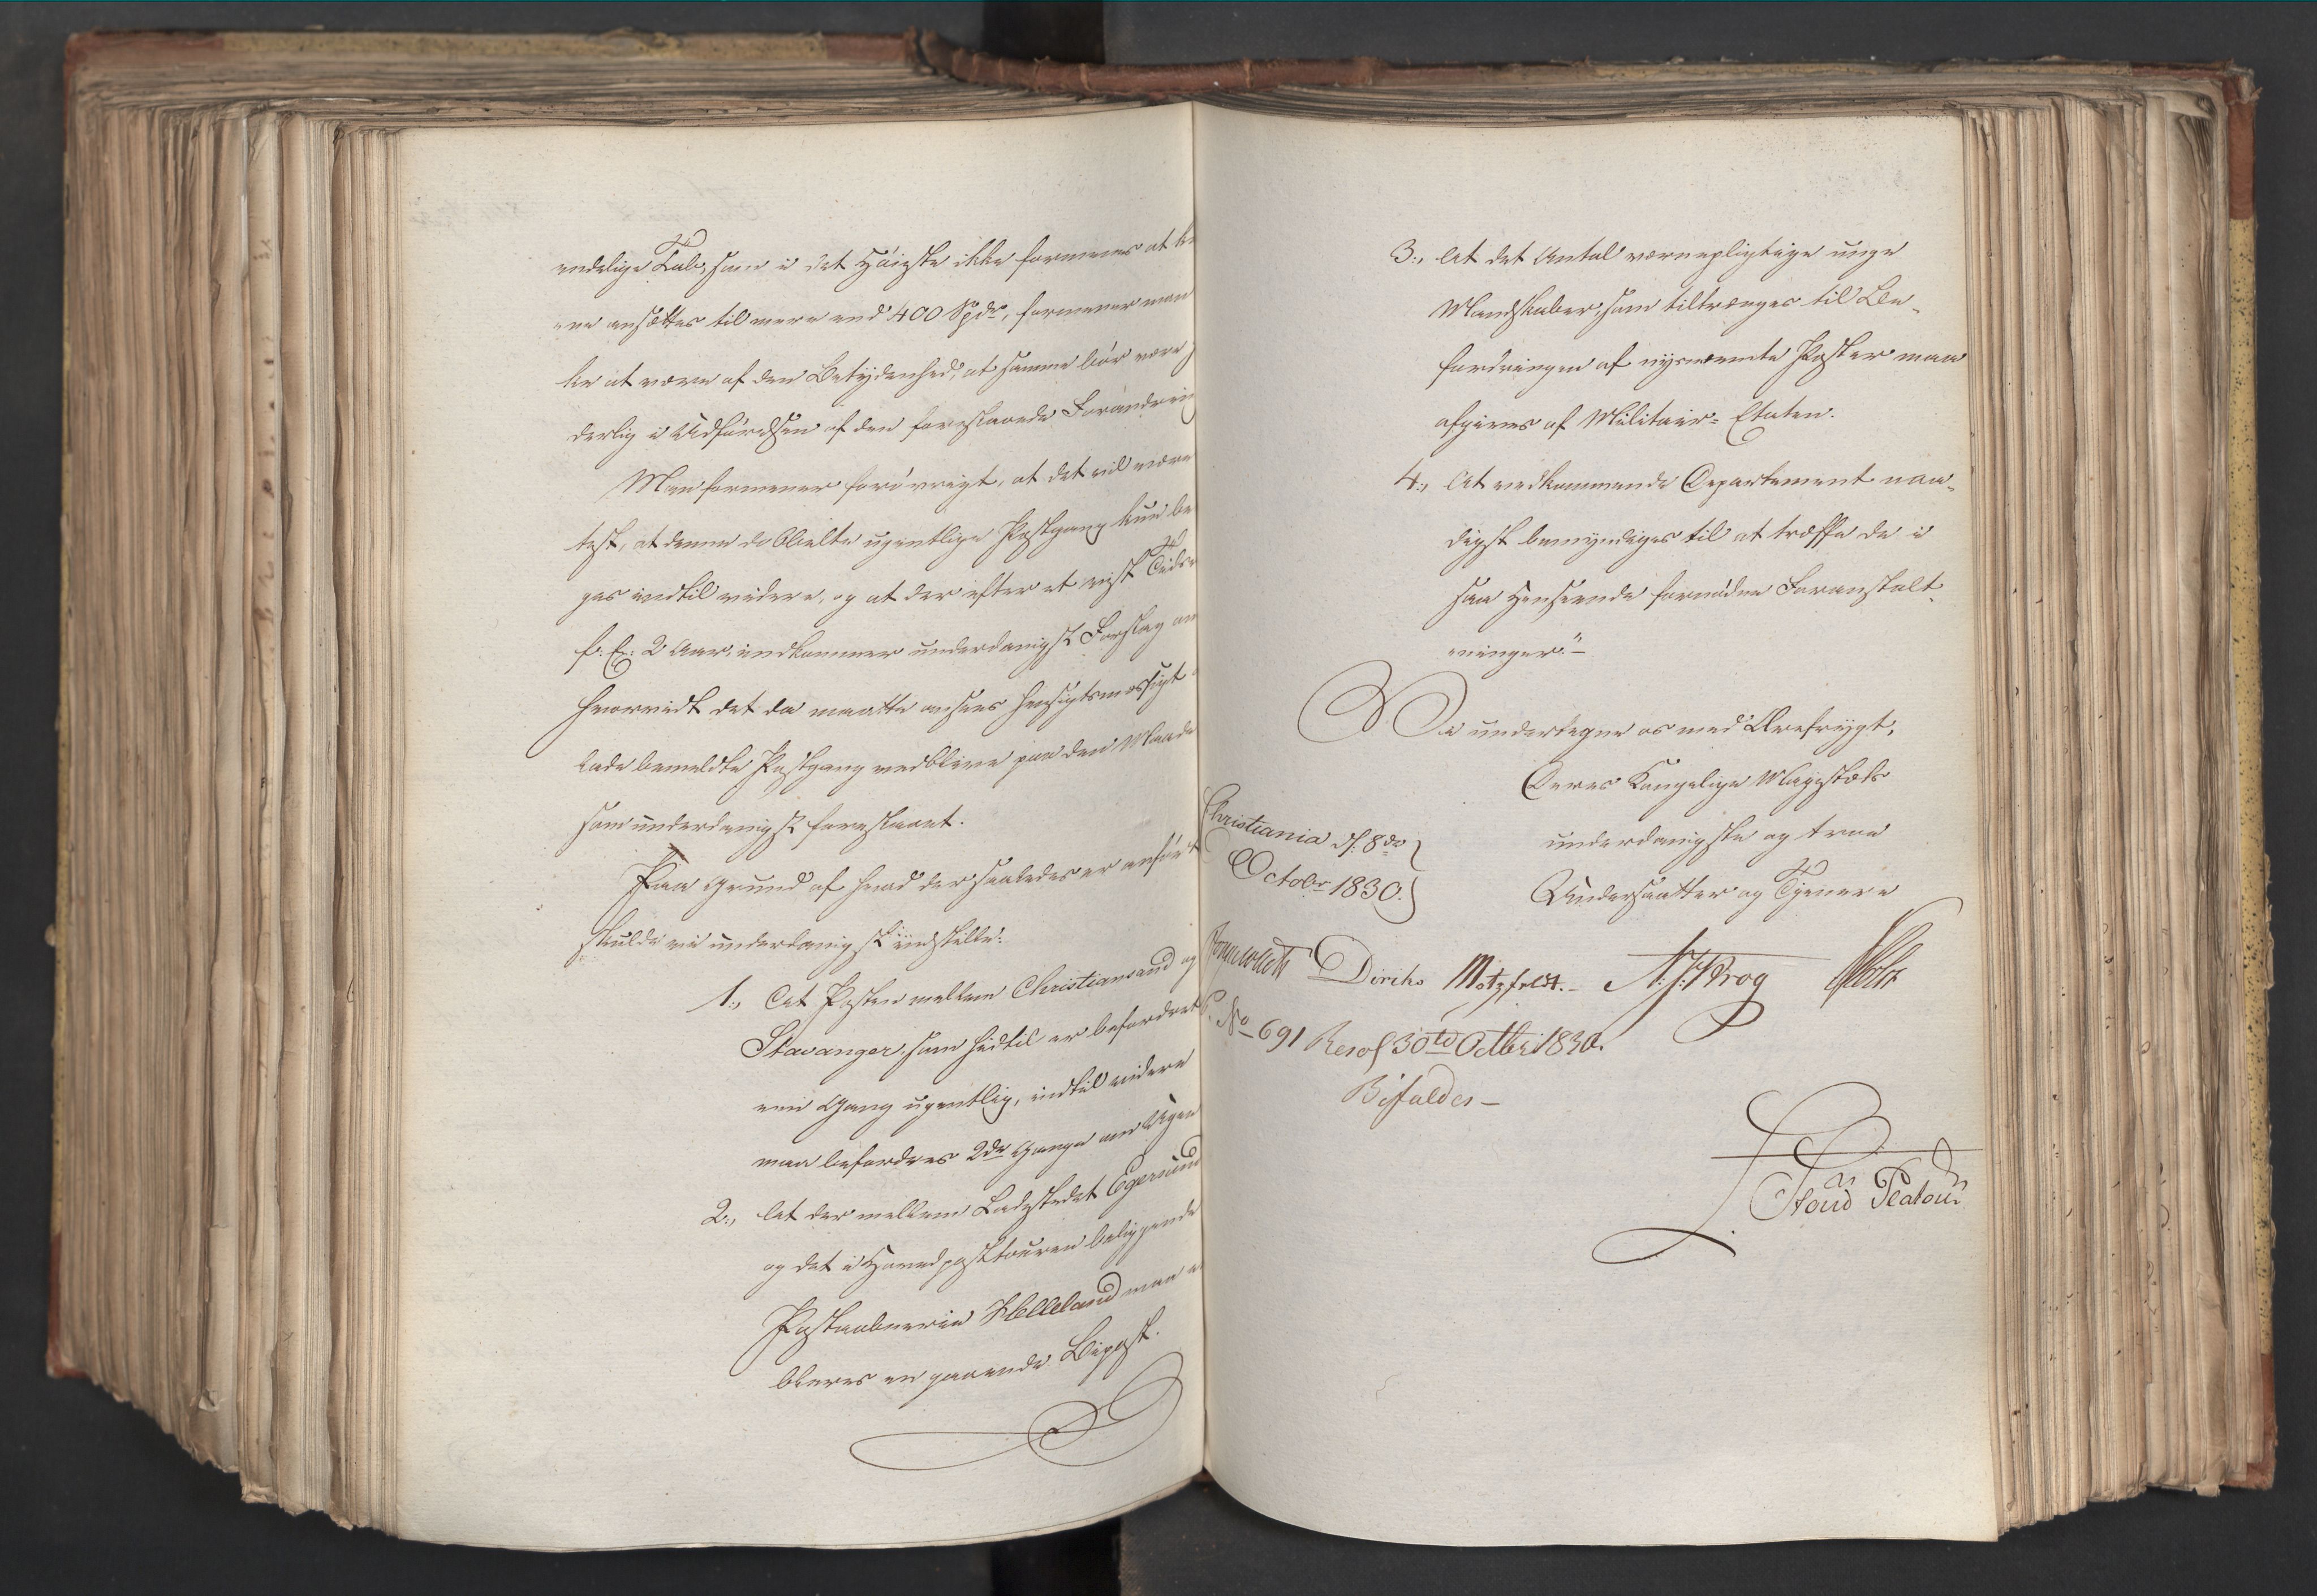 endelige Tab, som i det Høieste ikke formenes at k
ne ansættes til mere end 400 Spdr, formener man
ke at være af den Betydenhed, at samme bør være
derlig i Udførelsen af den foreslaaede Forandrin
Man formener forøvrigt, at det vil være
test, at denne dobbelte ugentlige Postgang kun be
ges indtil videre, og at der efter et vist Tids
f. Ex. 2 Aar, indkommer underdanigst Forslag om
hvorvidt det da maatte ansees hensigtsmæssigt
lade bemeldte Postgang vedblive paa den Maade
som underdanigst foreslaaet.
Paa Grund af hvad der saaledes er anført
skulde vi underdanigst indstille:
1., At Posten mellem Christiansand og
Stavanger, som hidtil er befordret
een Gang ugentlig, indtil videre
maa befordres 2de Gange om Ugen
2., At der mellem Ladestedet Egersund
og det i Hovedposttouren beliggende
Postaabnerie Helleland maa e
bleres en gaaende Bipost.
3., At det Antal værnepligtige unge
Mandskaber, som tiltrænges til Be-
fordringen af nysnævnte Poster maa
afgives af Militair-Etaten.
4., At vedkommende Departement naa-
digst bemyndiges til at træffe de i
saa Henseende fornødne Foranstalt-
ninger."
Vi undertegne os med Ærefrygt,
Deres Kongelige Majestæts
underdanigste og troe
Undersaatter og Tjenere
Christiania d. 8de
Octobr 1830.
Diriks Motzfeldt. N. J. Krog Holst
No 691 Resol 30te Octbr 1830.
Bifaldes
Stoud Platou